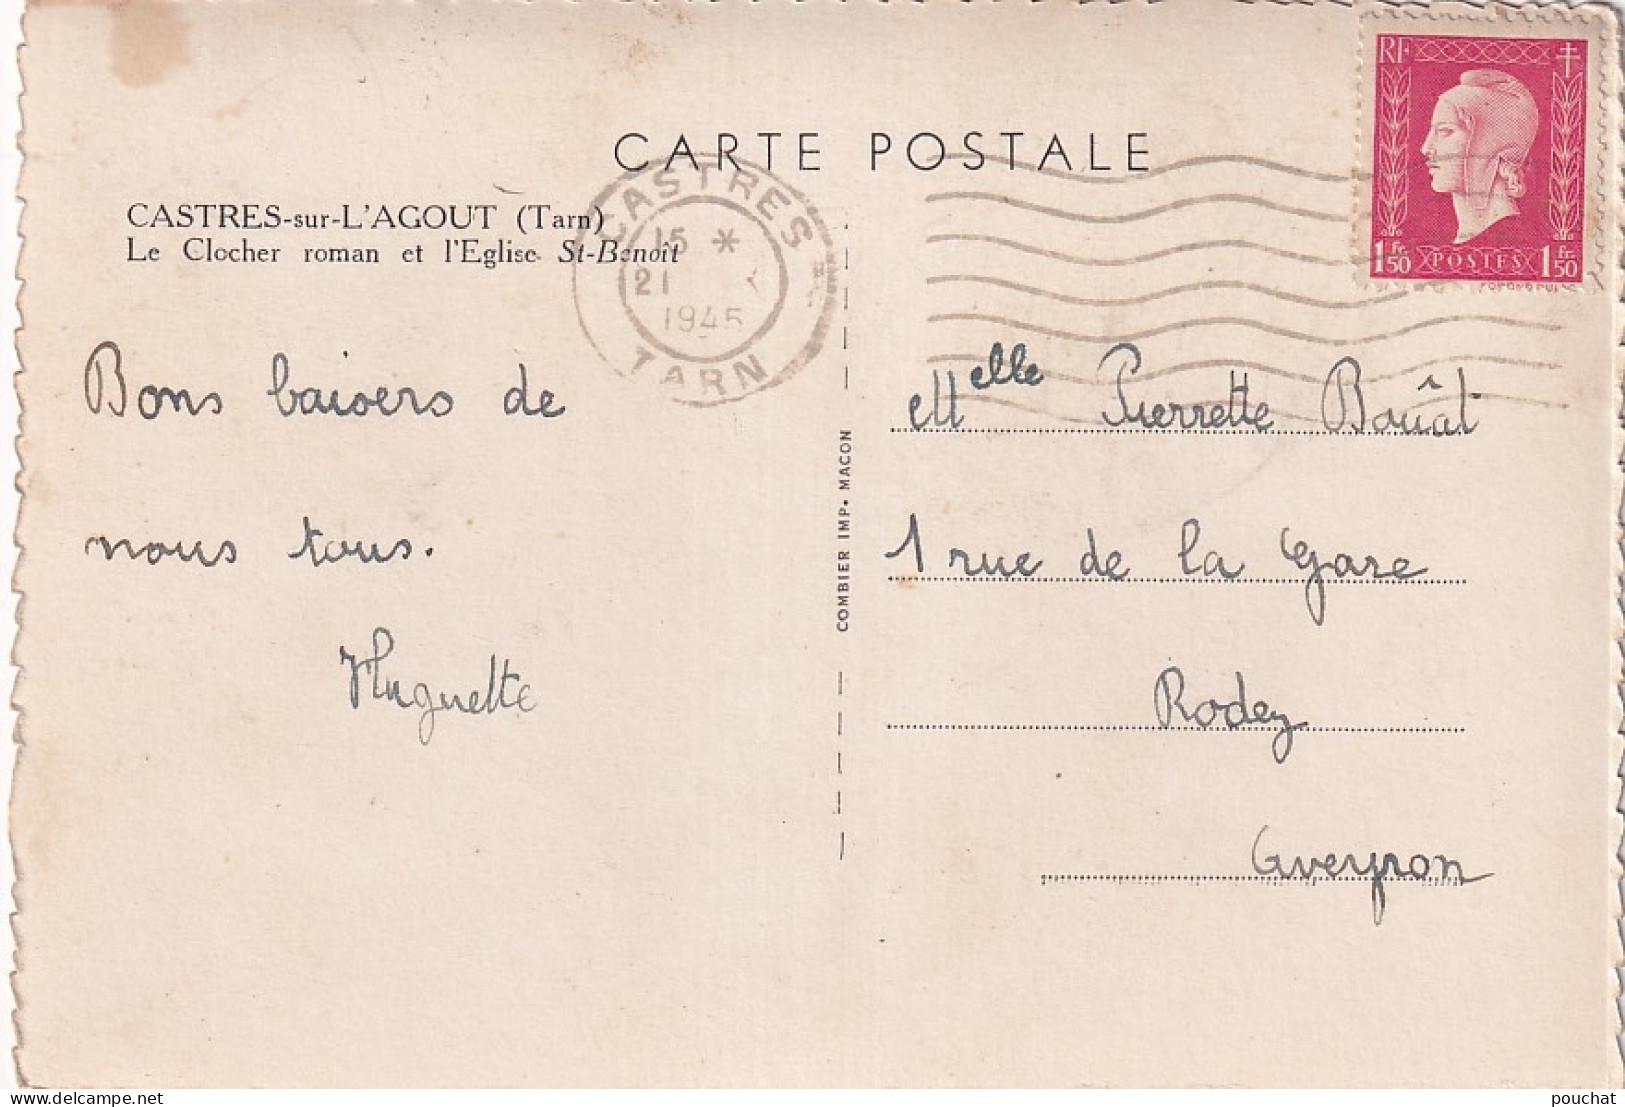 CARTE POSTALE
RF
1 Fr. 50 POSTES 1 Fr. 50
CASTRES
15 *
21
1945
TARN
CASTRES-sur-L'AGOUT (Tarn)
Le Clocher roman et l'Eglise St-Benoît
Bons baisers de
nous tous.
Huguette
COMBIER IMP. MACON
Melle Pierrette Bouât
1 rue de la Gare
Rodez
Aveyron
pouchat
delcampe.net